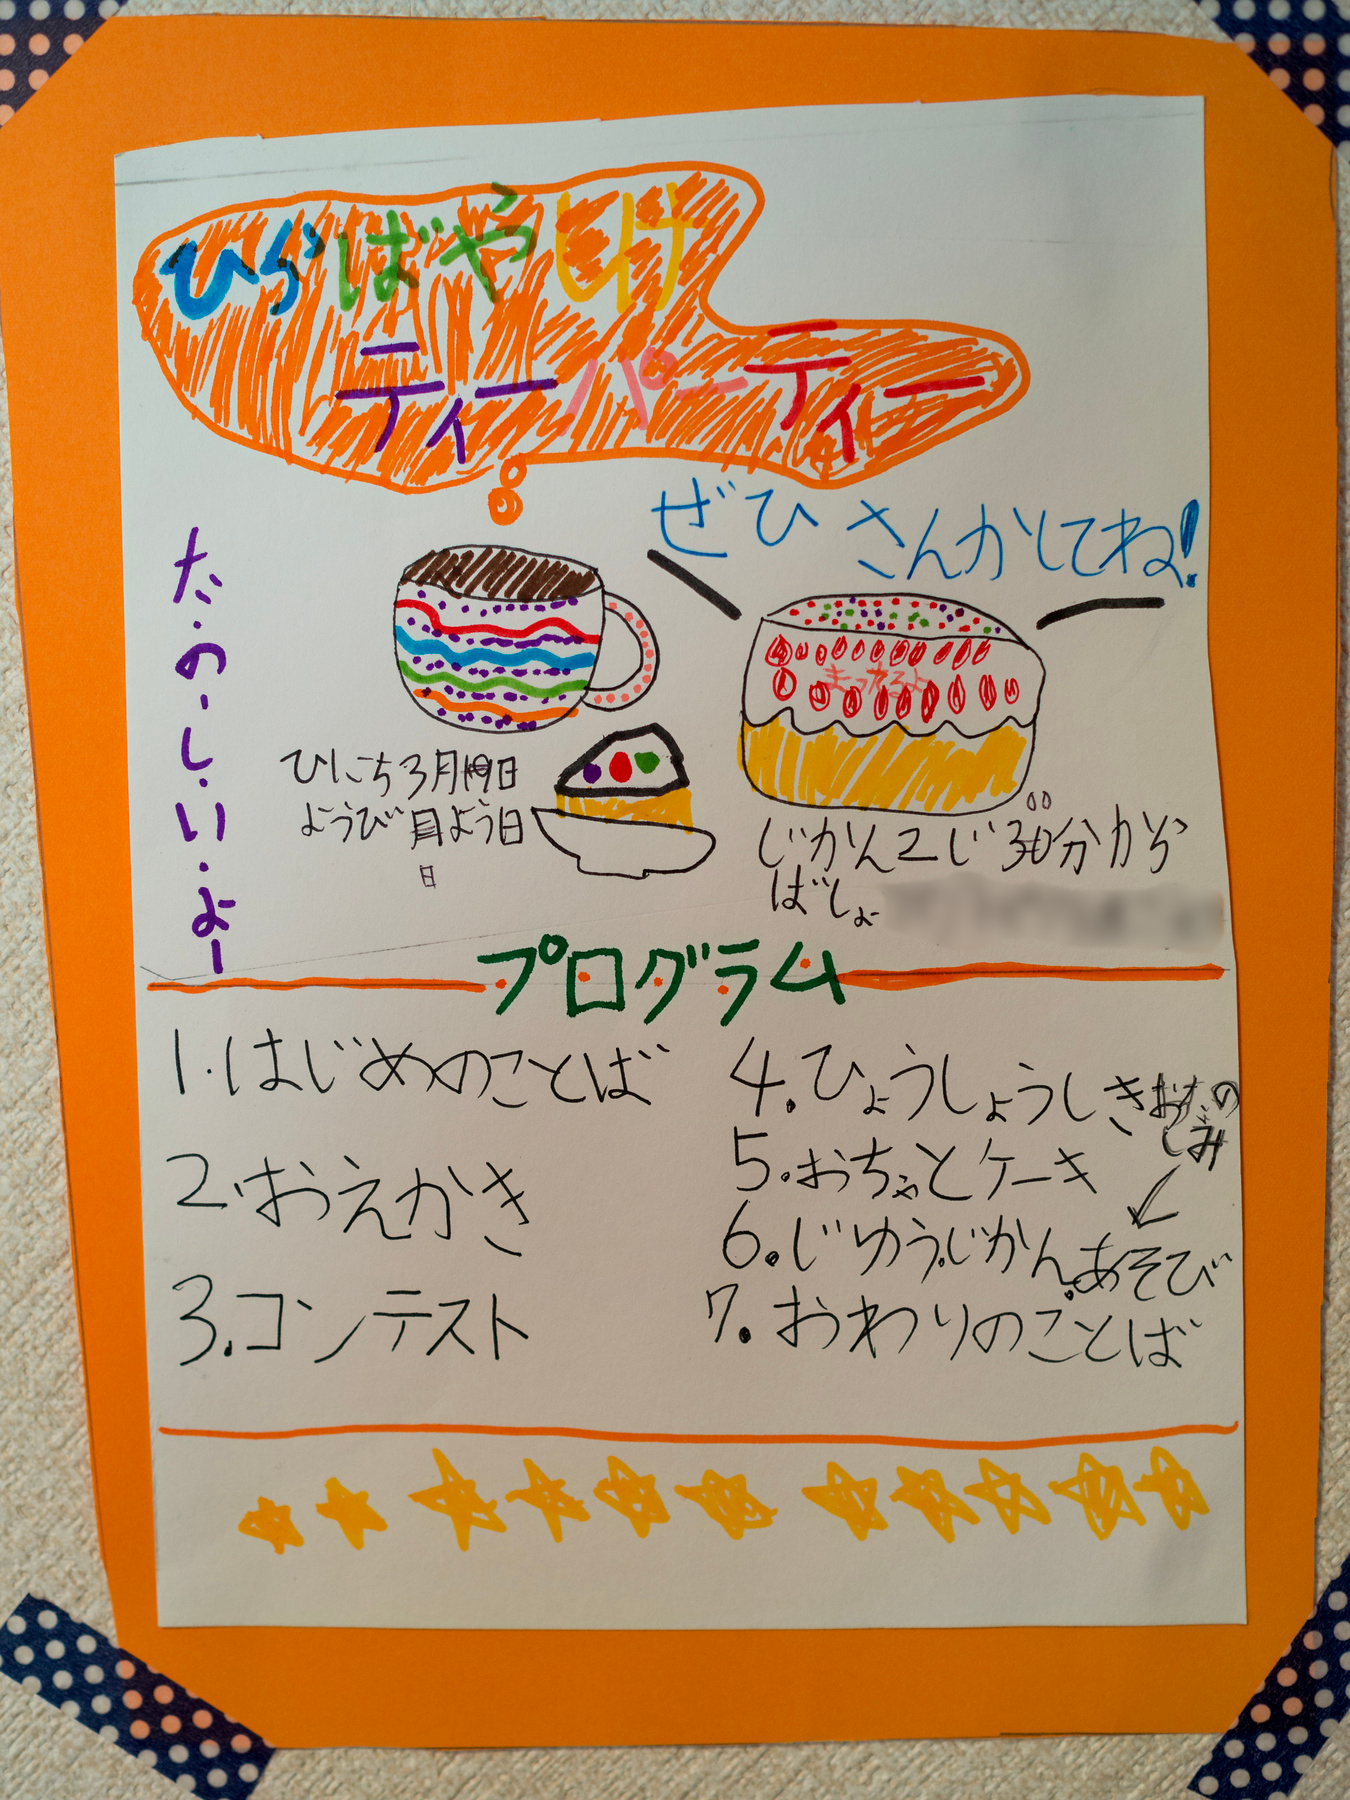 ひらばやしけ
ティーパーティー
ぜひ さんかしてね!
た・の・し・い・よー
まってるよ
ひにち3月19日
ようび 日よう日
日
じかん2じ30分から
ばしょ
プログラム
1.はじめのことば
2.おえかき
3.コンテスト
4.ひょうしょうしき
5.おちゃとケーキ
おたのしみ
6.じゆうじかん.あそび
7.おわりのことば